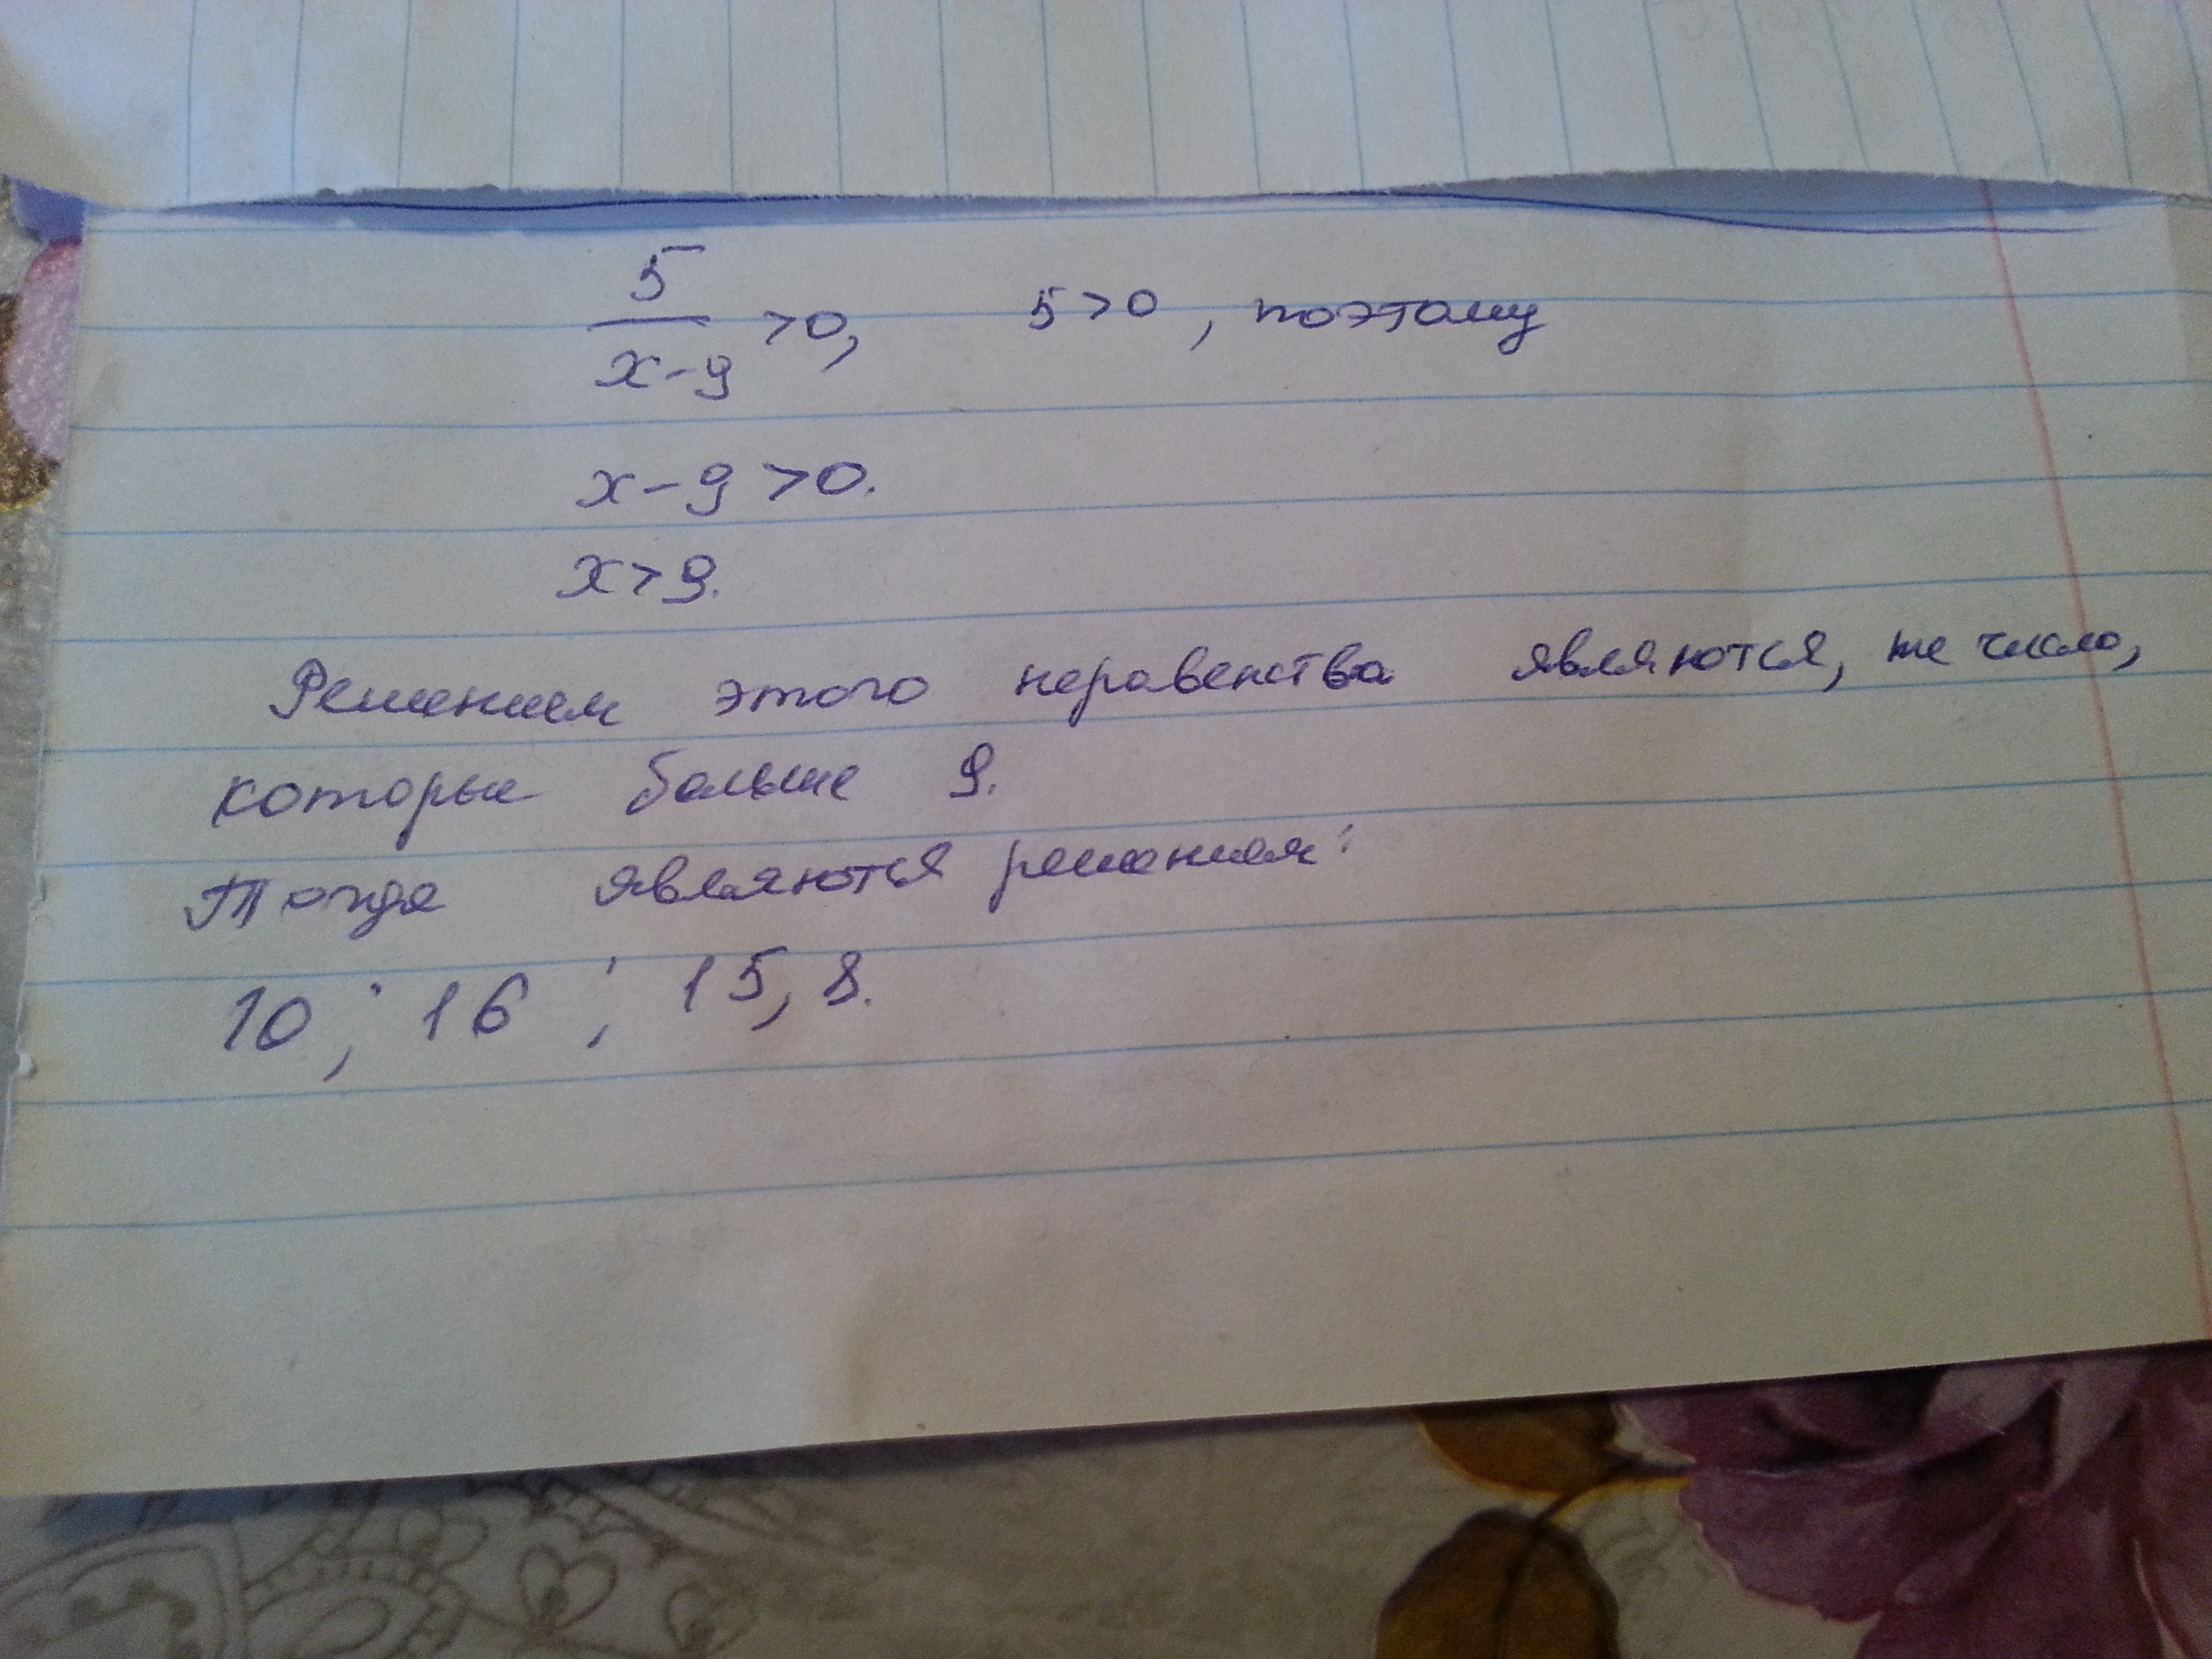 5/(x-9) >0, 5>0, поэтому
x-9>0.
x>9.
Решением этого неравенства являются, те число,
которые больше 9.
Тогда являются решением:
10; 16; 15,8.